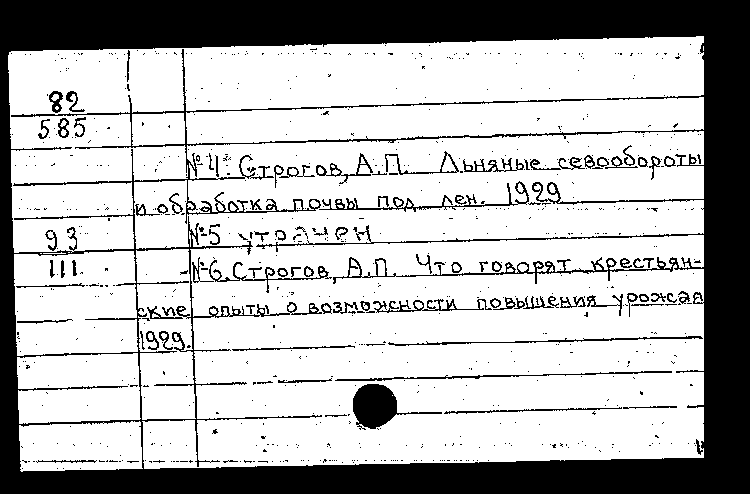 82
585
№4. Строгов, А.П. Льняные севообороты
и обработка почвы под лен. 1929
93
№5 утрачен
III
№6. Строгов, А.П. Что говорят крестьян-
ские опыты о возможности повышения урожая
1929.